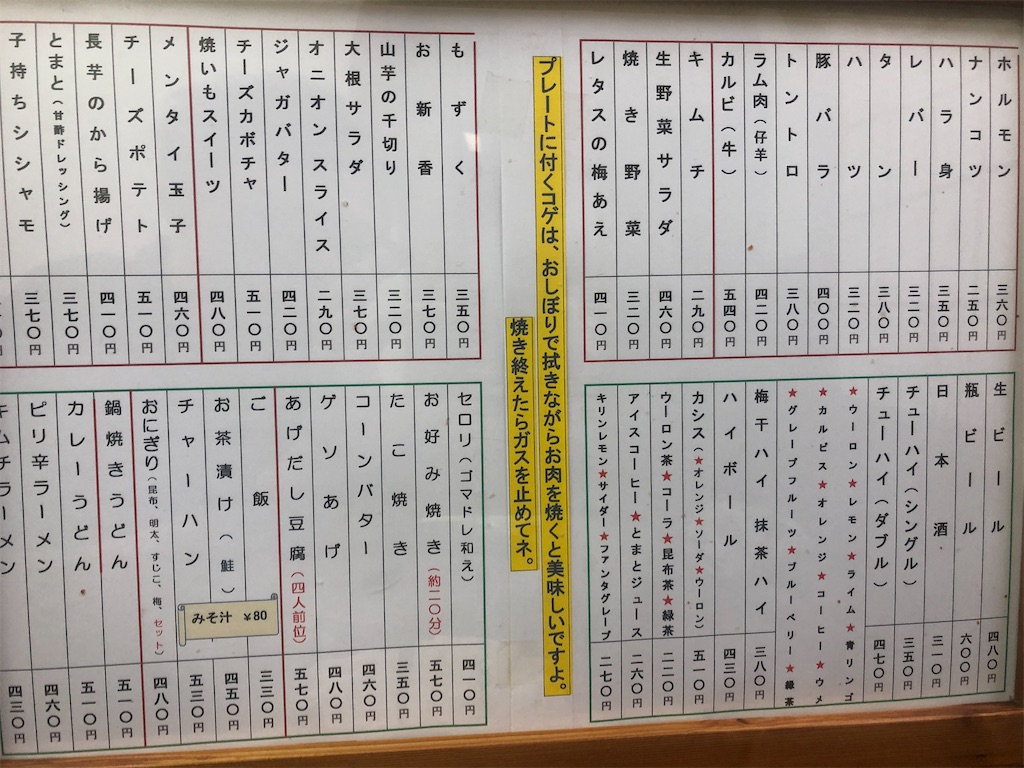 ホルモン 三六〇円
ナンコツ 二五〇円
ハラ身 三五〇円
レバー 三二〇円
タン 三八〇円
ハツ 三二〇円
豚バラ 四〇〇円
トントロ 三八〇円
ラム肉(仔羊) 四二〇円
カルビ(牛) 五四〇円
キムチ 二九〇円
生野菜サラダ 四六〇円
焼き野菜 三二〇円
レタスの梅あえ 四一〇円
生ビール 四八〇円
瓶ビール 六〇〇円
日本酒 三一〇円
チューハイ(シングル) 三五〇円
チューハイ(ダブル) 四七〇円
★ウーロン★レモン★ライム★青リンゴ
★カルピス★オレンジ★コーヒー★ウメ
★グレープフルーツ★ブルーベリー★緑茶
梅干ハイ 抹茶ハイ 三八〇円
ハイボール 四三〇円
カシス(★オレンジ★ソーダ★ウーロン) 五一〇円
ウーロン茶★コーラ★昆布茶★緑茶 二二〇円
アイスコーヒー★とまとジュース 二六〇円
キリンレモン★サイダー★ファンタグレープ 二七〇円
プレートに付くコゲは、おしぼりで拭きながらお肉を焼くと美味しいですよ。
焼き終えたらガスを止めてネ。
もずく 三五〇円
お新香 三七〇円
山芋の千切り 三二〇円
大根サラダ 三七〇円
オニオンスライス 二九〇円
ジャガバター 四二〇円
チーズカボチャ 五一〇円
焼いもスイーツ 四八〇円
メンタイ玉子 四六〇円
チーズポテト 五一〇円
長芋のから揚げ 四一〇円
とまと(甘酢ドレッシング) 三七〇円
子持ちシシャモ 三七〇円
セロリ(ゴマドレ和え) 四一〇円
お好み焼き(約二〇分) 五七〇円
たこ焼き 三五〇円
コーンバター 四六〇円
ゲソあげ 四八〇円
あげだし豆腐(四人前位) 五七〇円
ご飯 三三〇円
お茶漬け(鮭) 四五〇円
みそ汁 ¥80
チャーハン 五三〇円
おにぎり(昆布、明太、すじこ、梅、セット) 四八〇円
鍋焼きうどん 五一〇円
カレーうどん 五一〇円
ピリ辛ラーメン 四六〇円
キムチラーメン 四三〇円